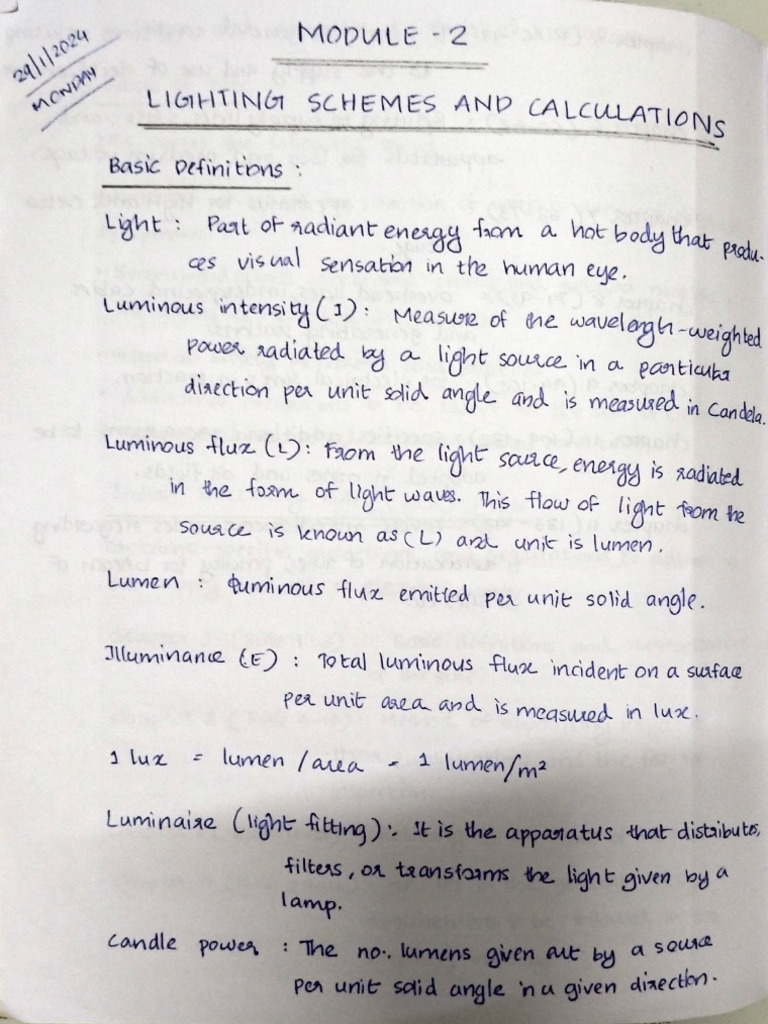 29/1/2024
MONDAY
MODULE - 2
LIGHTING SCHEMES AND CALCULATIONS
Basic Definitions :
Light : Part of radiant energy from a hot body that produ-
ces visual sensation in the human eye.
Luminous intensity (I) : Measure of the wavelength-weighted
power radiated by a light source in a particular
direction per unit solid angle and is measured in Candela.
Luminous flux (L) : From the light source, energy is radiated
in the form of light waves. This flow of light from the
source is known as (L) and unit is lumen.
Lumen : Luminous flux emitted per unit solid angle.
Illuminance (E) : Total luminous flux incident on a surface
per unit area and is measured in lux.
1 lux = lumen / area = 1 lumen/m²
Luminaire (light fitting) : It is the apparatus that distributes,
filters, or transforms the light given by a
lamp.
Candle power : The no. lumens given out by a source
per unit solid angle in a given direction.